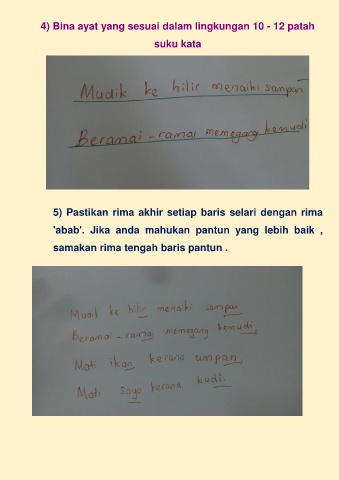 4) Bina ayat yang sesuai dalam lingkungan 10 - 12 patah
suku kata
Mudik ke hilir menaiki sampan
Beramai - ramai memegang kemudi
5) Pastikan rima akhir setiap baris selari dengan rima
'abab'. Jika anda mahukan pantun yang lebih baik ,
samakan rima tengah baris pantun .
Mudik ke hilir menaiki sampan
Beramai - ramai memegang kemudi
Mati ikan kerana umpan
Mati saya kerana budi.